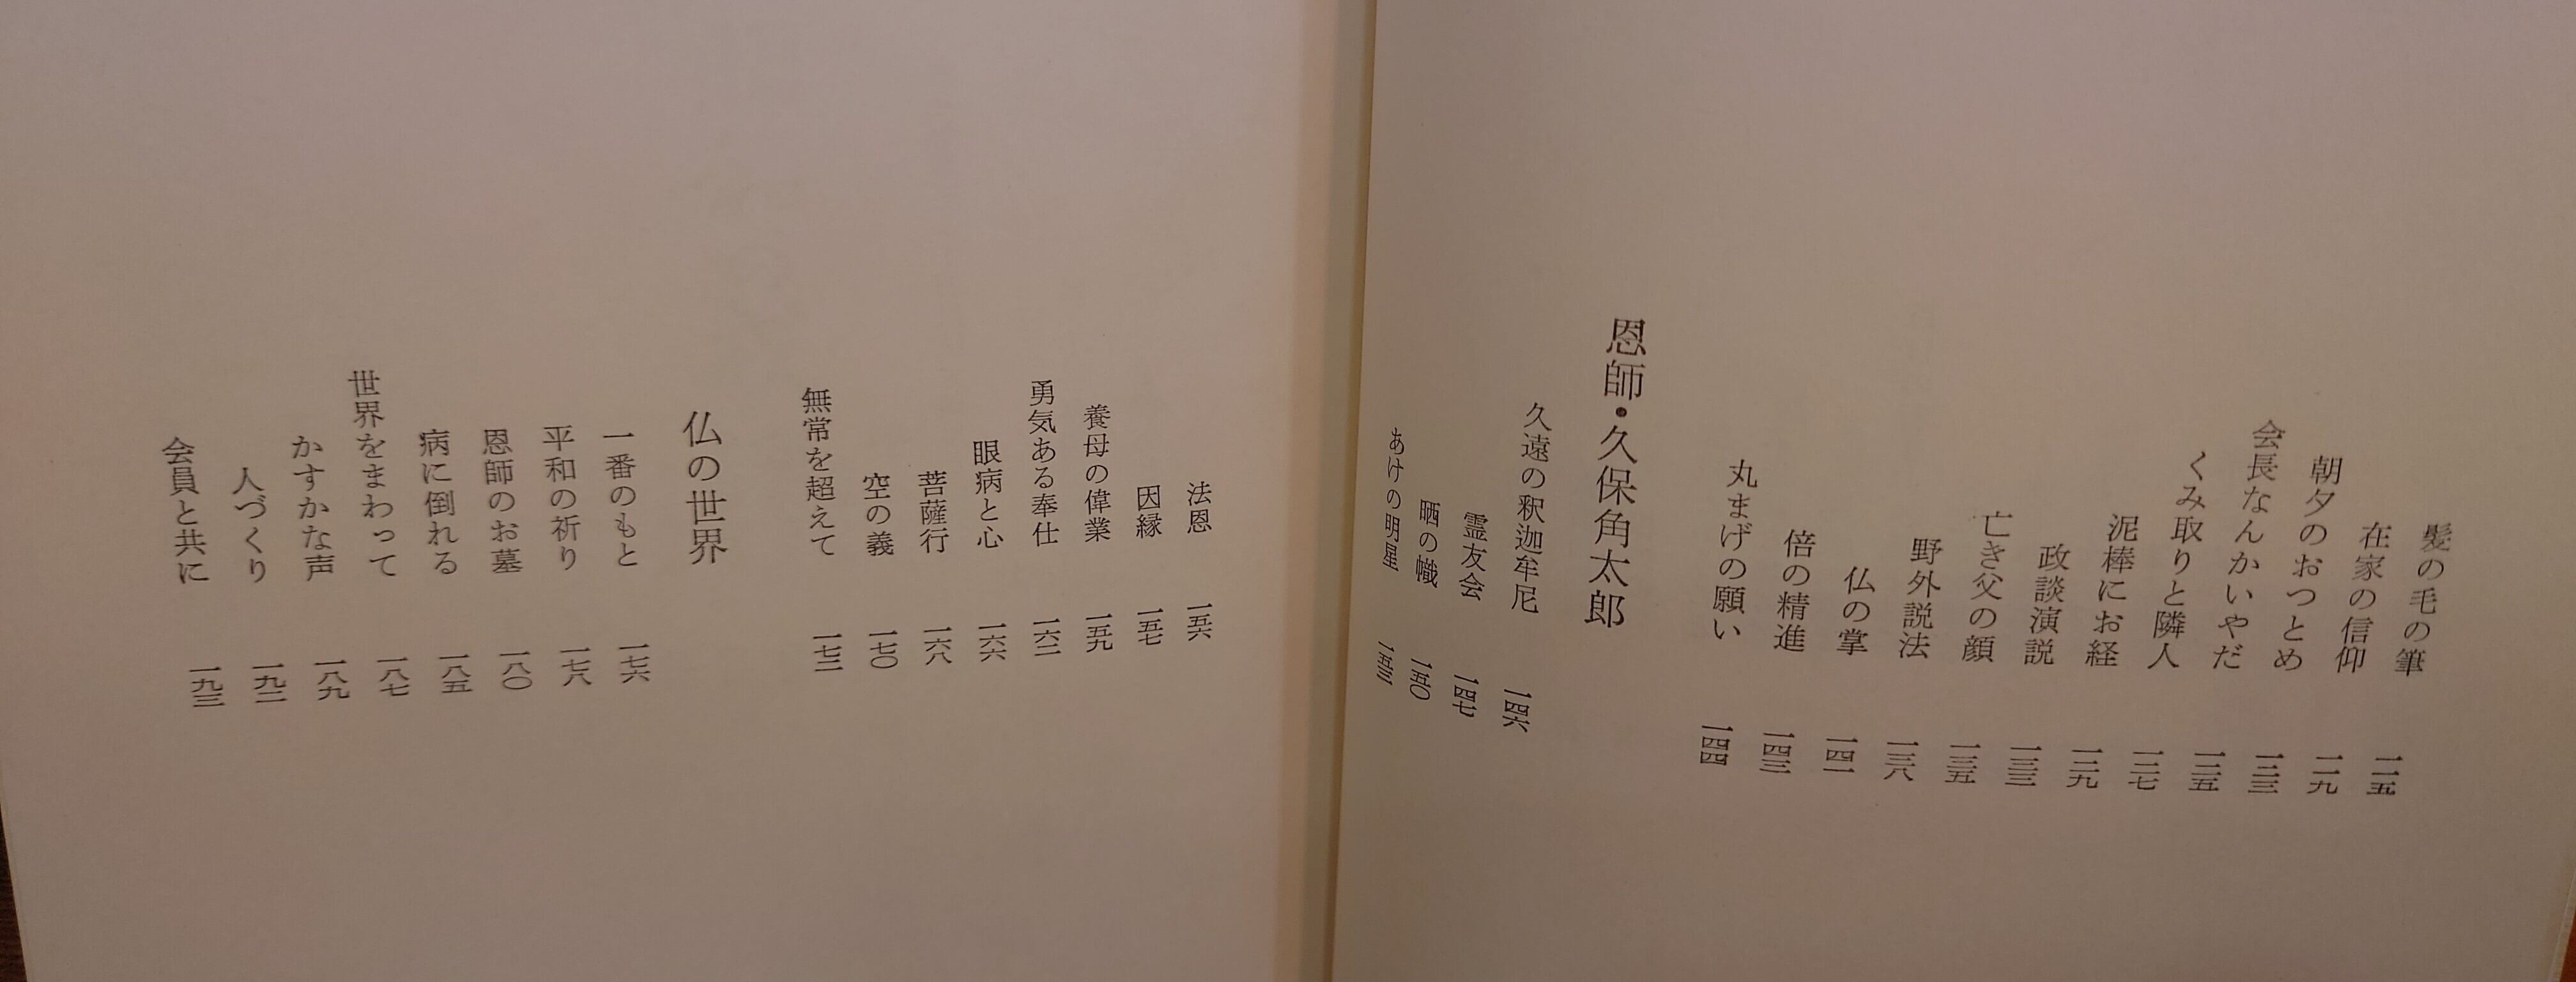 髪の毛の筆 一一五
在家の信仰 一一九
朝夕のおつとめ 一二三
会長なんかいやだ 一二五
くみ取りと隣人 一二七
泥棒にお経 一二九
政談演説 一三三
亡き父の顔 一三五
野外説法 一三八
仏の掌 一四一
倍の精進 一四三
丸まげの願い 一四四
恩師・久保角太郎
久遠の釈迦牟尼 一四六
霊友会 一四七
晒の幟 一五〇
あけの明星 一五三
法恩 一五六
因縁 一五七
養母の偉業 一五九
勇気ある奉仕 一六二
眼病と心 一六六
菩薩行 一六八
空の義 一七〇
無常を超えて 一七二
仏の世界
一番のもと 一七六
平和の祈り 一七八
恩師のお墓 一八〇
病に倒れる 一八五
世界をまわって 一八七
かすかな声 一八九
人づくり 一九二
会員と共に 一九三